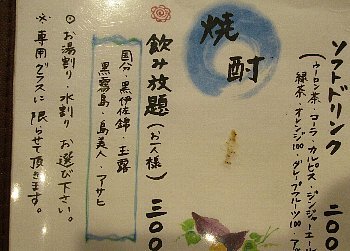 ソフトドリンク 二〇〇
(ウーロン茶・コーラ・カルピス・ジンジャーエー
緑茶・オレンジ100・グレープフルーツ100・ア
焼酎
飲み放題(お一人様) 三〇〇
国分・黒伊佐錦・玉露
黒霧島・島美人・アサヒ
◎お湯割り・水割り お選び下さい。
※専用グラスに限らせて頂きます。